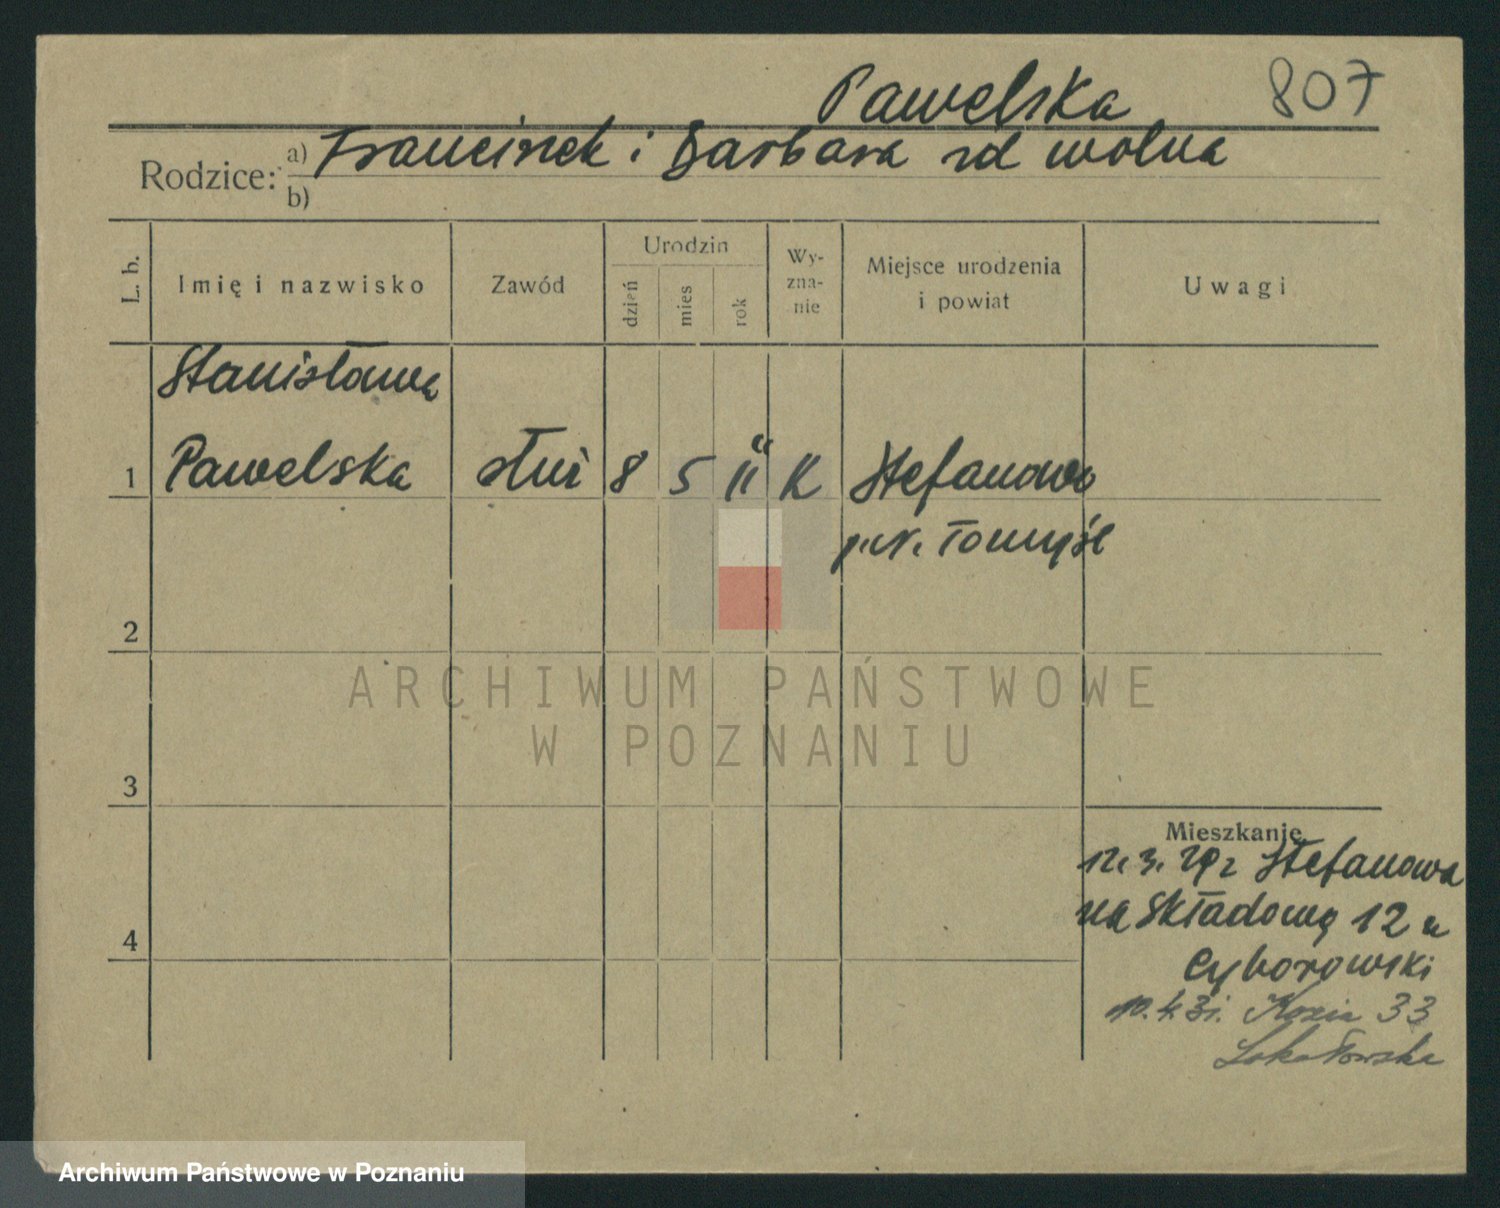 Pawelska 807
Rodzice: a) Franciszek i Barbara zd Wolna
b)
L. b. Imię i nazwisko Zawód Urodzin dzień mies rok Wy-zna-nie Miejsce urodzenia i powiat Uwagi
Stanisława
1 Pawelska służ 8 5 11 K Stefanowo
p. N. Tomyśl
2
ARCHIWUM PAŃSTWOWE
W POZNANIU
3
Mieszkanie
12. 3. 29 z Stefanowa
na Składową 12 u
4
Cyborowski
10. 4. 31. Kozia 33
Archiwum Państwowe w Poznaniu